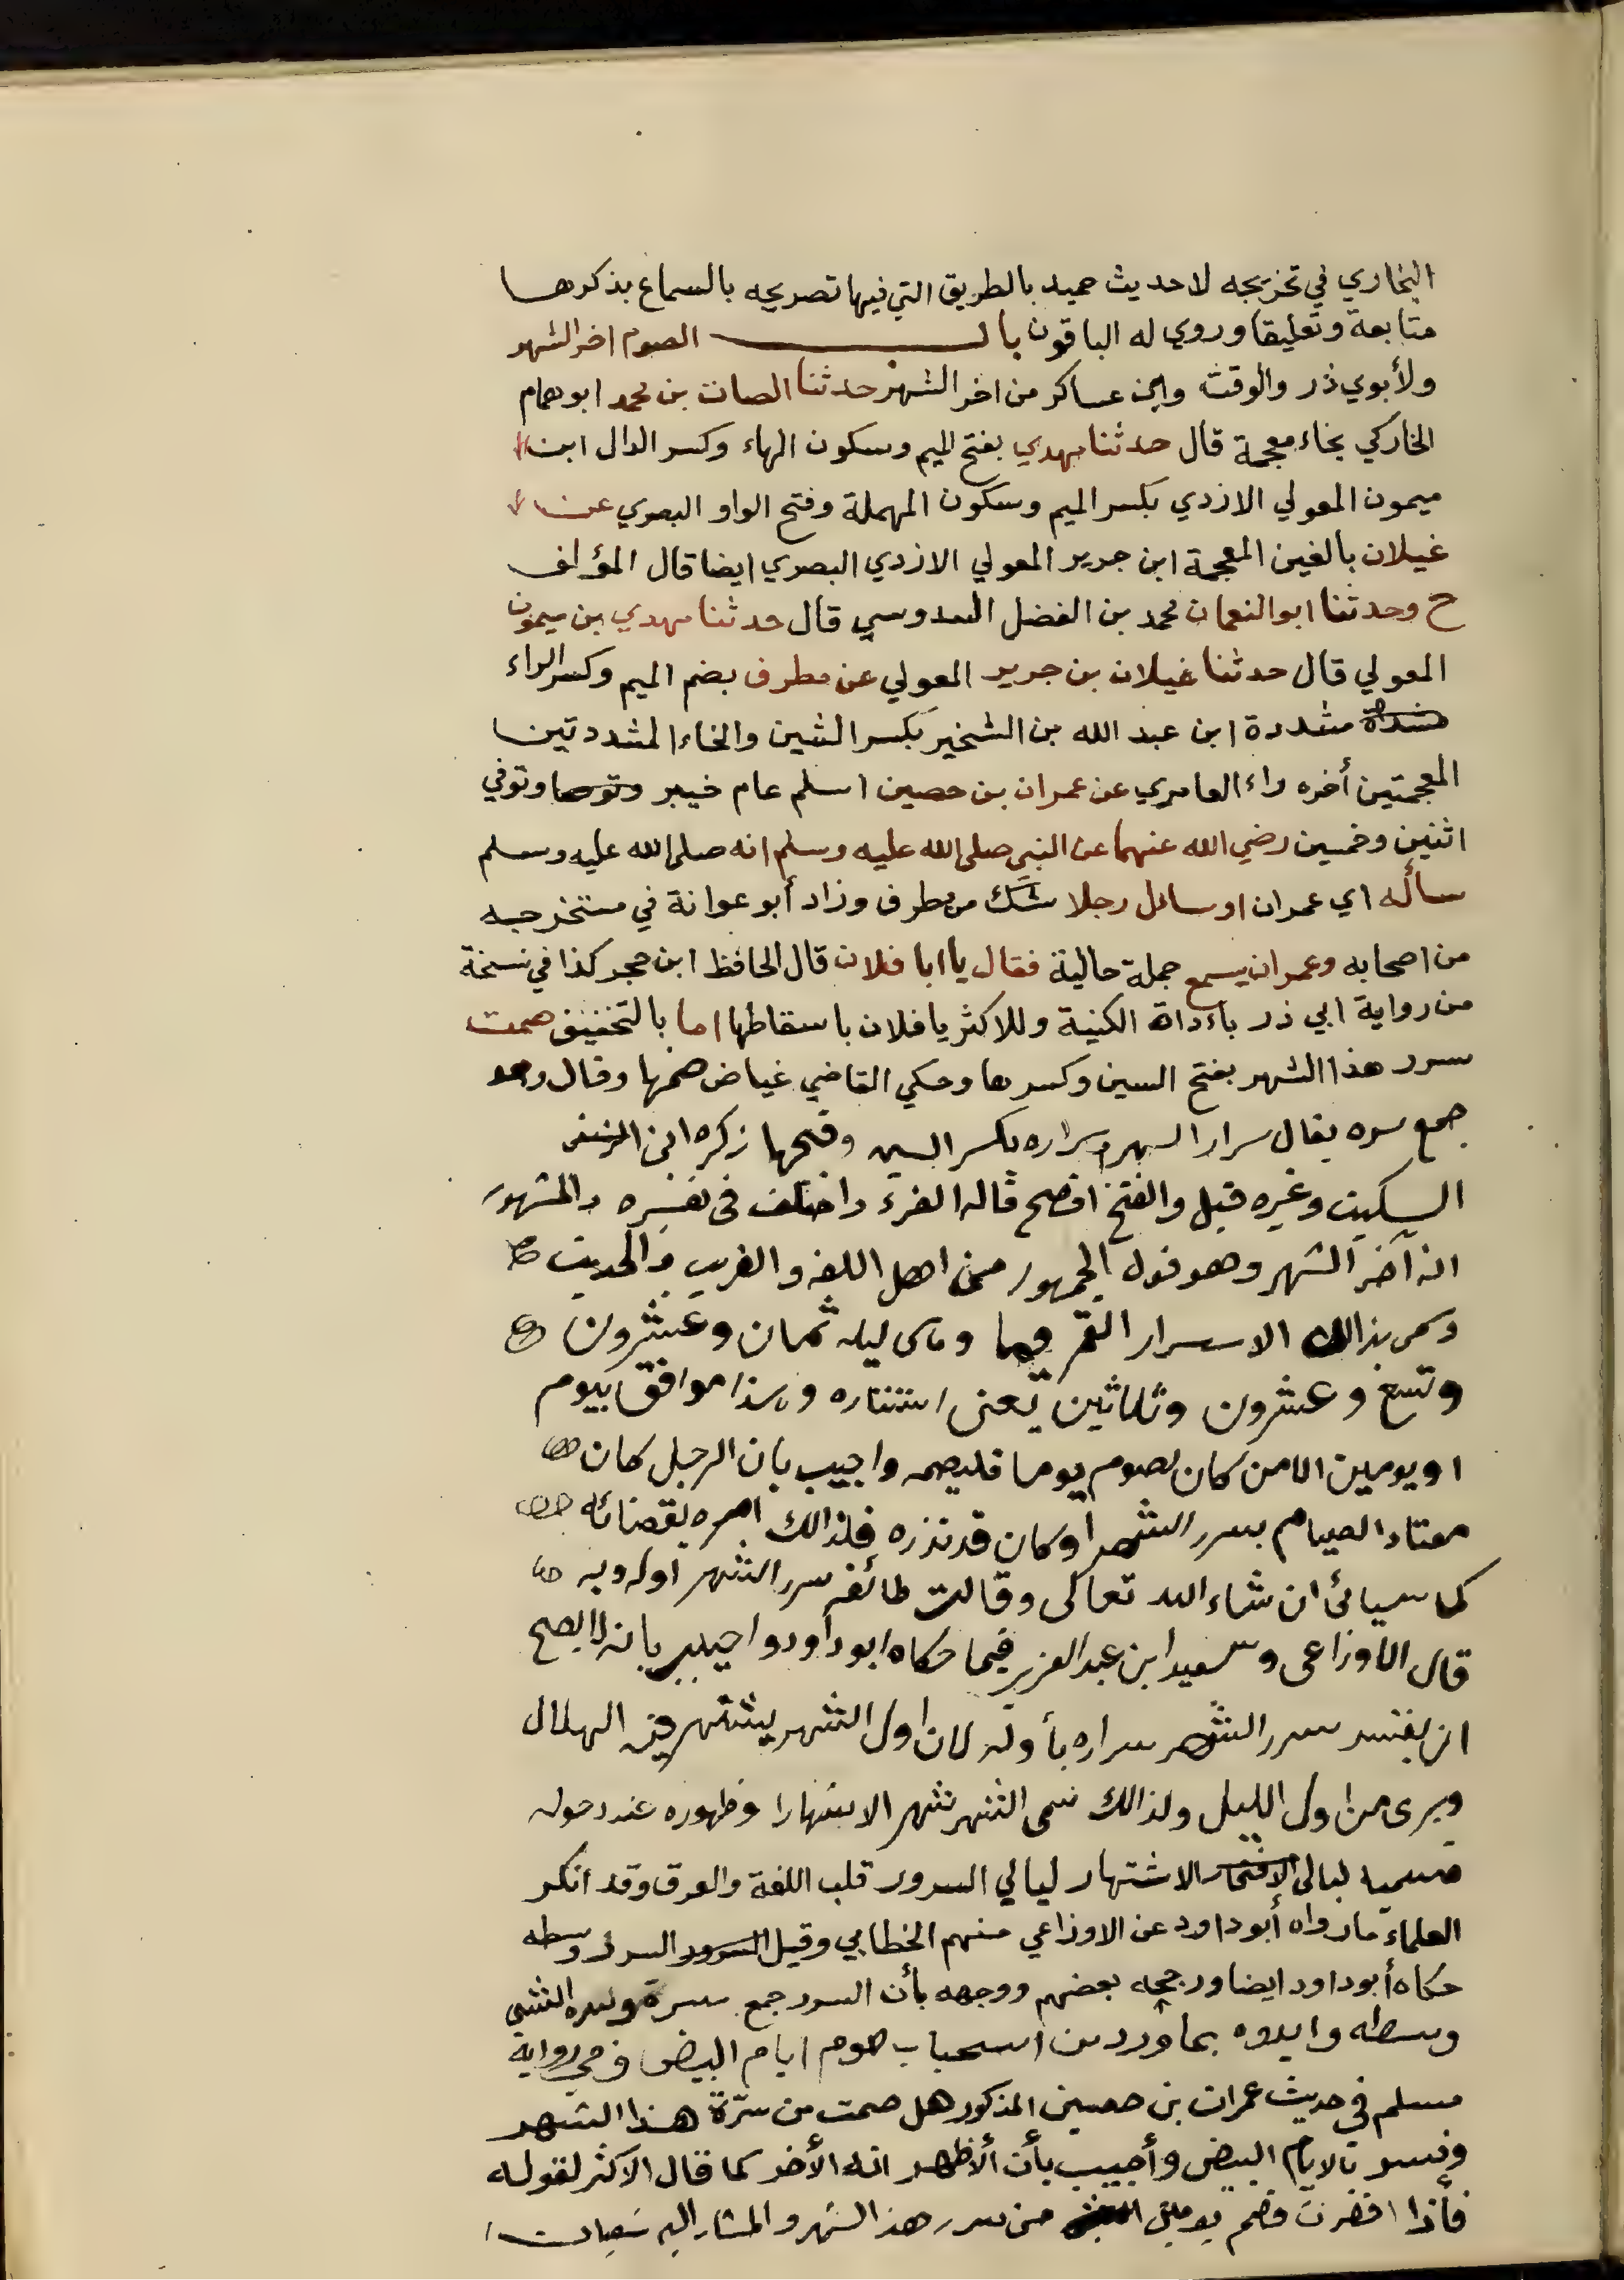 البخاري في تخريجه لاحديث حميد بالطريق التي فيها تصريحه بالسماع بذكرها
متابعة وتعليقا وروي له الباقون باب الصوم اخر الشهر
ولأبوي ذر والوقت وابن عساكر من اخر الشهر حدثنا الصلت بن محمد ابو همام
الخاركي بخاء معجمة قال حدثنا مهدي بفتح الميم وسكون الهاء وكسر الدال ابن
ميمون المعولي الازدي بكسر الميم وسكون المهملة وفتح الواو البصري عن
غيلان بالغين المعجمة ابن جرير المعولي الازدي البصري ايضا قال المؤلف
ح وحدثنا ابو النعمان محمد بن الفضل السدوسي قال حدثنا مهدي بن ميمون
المعولي قال حدثنا غيلان بن جرير المعولي عن مطرف بضم الميم وكسر الراء
مشددة ابن عبد الله بن الشخير بكسر الشين والخاء المشددتين
المعجمتين أخره راء العامري عن عمران بن حصين اسلم عام خيبر وتوفي
اثنين وخمسين رضي الله عنهما عن النبي صلى الله عليه وسلم انه صلى الله عليه وسلم
سأله اي عمران او سائل رجلا شك من مطرف وزاد أبو عوانة في مستخرجه
من اصحابه وعمران يسمع جملة حالية فقال يا ابا فلان قال الحافظ ابن حجر كذا في نسخة
من رواية ابي ذر باءداة الكنية وللاكثر يا فلان باسقاطها اما بالتخفيف صمت
سرر هذا الشهر بفتح السين وكسرها وحكي القاضي غياض ضمها وقال وهو
جمع سره يقال سرار الشهر وسراره بكسر السين وفتحها زكره ابن
السكيت وغيره قيل والفتح افصح قاله الفرء واختلف في تفسيره والمشهور
انه آخر الشهر وهو قول الجمهور من اهل اللغه والغريب والحديث
وسمى بذالك الاسسرار القمر فيها وهى ليله ثمان وعشرون
وتسع وعشرون وثلاثين يعنى استتاره وهذا موافق بيوم
او يومين الا من كان يصوم يوما فليصمه واجيب بان الرجل كان
معتاد الصيام بسرر الشهر أو كان قد نذره فلذالك امره بقضائه
كما سيائى ان شاء الله تعالى وقالت طائفه سرر الشهر اوله وبه
قال الاوزاعى وسعيد ابن عبد العزيز فيما حكاه ابو داود واجيب بانه لا يصح
ان يفسر سرر الشهر سراره بأوله لان اول الشهر يشتهر فيه الهلال
ويرى من اول الليل ولذالك سمى الشهر شهر الاشتهارا وظهوره عند دخوله
فتسمية ليالى الاشتهار ليالي السرور قلب اللغة والعرق وقد انكر
العلماء ما رواه أبو داود عن الاوزاعي منهم الخطابي وقيل السرر وسطه
حكاه أبو داود ايضا ورجحه بعضهم ووجهه بأن السرر جمع سرة وسره الشى
وسطه وايدوه بما ورد من استحباب صوم ايام البيض وفي رواية
مسلم في حديث عمران بن حصين المذكور هل صمت من سرّة هذا الشهر
وفسر بالايام البيض وأجيب بأن ألاظهر انه الأخر كما قال الاكثر لقوله
فأذا افطرت فصم يومين من سرر هذ الشهر والمشار اليه شعبان